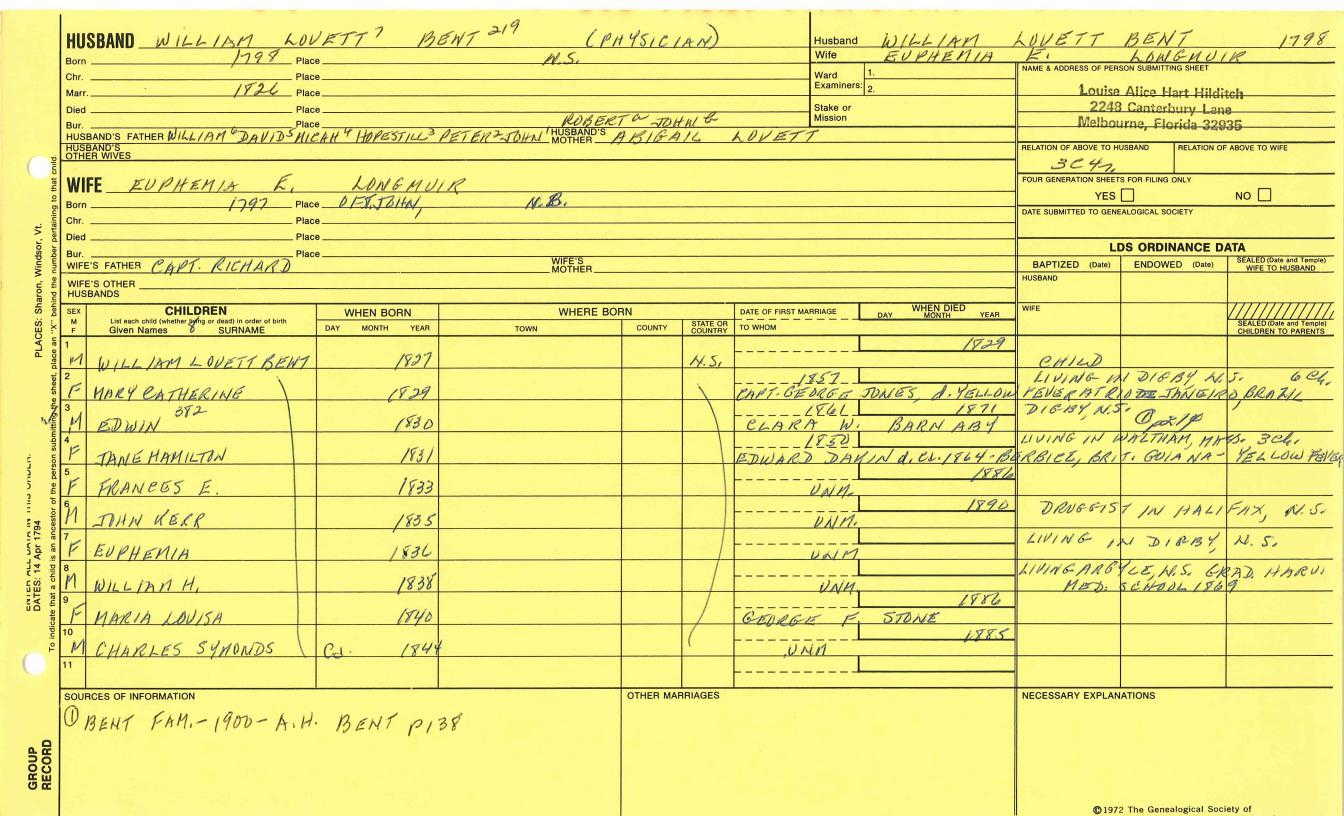 HUSBAND WILLIAM LOVETT 7 BENT 219 (PHYSICIAN)
Born 1798 Place N.S.
Chr. Place
Marr. 1826 Place
Died Place
Bur. Place ROBERT a JOHN b
HUSBAND'S FATHER WILLIAM 6 DAVID 5 MICAH 4 HOPESTILL 3 PETER 2 JOHN 1 HUSBAND'S MOTHER ABIGAIL LOVETT
HUSBAND'S OTHER WIVES
Husband WILLIAM LOVETT BENT 1798
Wife EUPHEMIA E. LONGMUIR
Ward Examiners: 1.
2.
Stake or Mission
NAME & ADDRESS OF PERSON SUBMITTING SHEET
Louise Alice Hart Hilditch
2248 Canterbury Lane
Melbourne, Florida 32935
RELATION OF ABOVE TO HUSBAND RELATION OF ABOVE TO WIFE
3C4r
FOUR GENERATION SHEETS FOR FILING ONLY
YES NO
DATE SUBMITTED TO GENEALOGICAL SOCIETY
WIFE EUPHEMIA E. LONGMUIR
Born 1797 Place OF ST. JOHN, N.B.
Chr. Place
Died Place
Bur. Place
WIFE'S FATHER CAPT. RICHARD WIFE'S MOTHER
WIFE'S OTHER HUSBANDS
LDS ORDINANCE DATA
BAPTIZED (Date) ENDOWED (Date) SEALED (Date and Temple) WIFE TO HUSBAND
HUSBAND
WIFE
SEALED (Date and Temple) CHILDREN TO PARENTS
SEX M F CHILDREN WHEN BORN WHERE BORN DATE OF FIRST MARRIAGE WHEN DIED
List each child (whether living or dead) in order of birth
Given Names SURNAME DAY MONTH YEAR TOWN COUNTY STATE OR COUNTRY TO WHOM DAY MONTH YEAR
1 M WILLIAM LOVETT BENT 1827 N.S. 1829 CHILD
2 F MARY CATHERINE 1829 1857 LIVING IN DIGBY N.S. 6 Ch.
CAPT. GEORGE JONES, d. YELLOW FEVER AT RIO DE JANEIRO, BRAZIL
3 M EDWIN 382 1830 1861 1871 DIGBY, N.S. ① p218
CLARA W. BARNABY
4 F JANE HAMILTON 1831 1850 LIVING IN WALTHAM, MASS. 3 Ch.
EDWARD DAKIN d. CA. 1864 - BERBICE, BRIT. GUIANA - YELLOW FEVER
5 F FRANCES E. 1833 UNM. 1886
6 M JOHN KERR 1835 UNM. 1890 DRUGGIST IN HALIFAX, N.S.
7 F EUPHEMIA 1836 UNM LIVING IN DIGBY, N.S.
8 M WILLIAM H. 1838 UNM. LIVING ARGYLE, N.S. GRAD. HARV. MED. SCHOOL 1869
9 F MARIA LOUISA 1840 1886
GEORGE F. STONE
10 M CHARLES SYMONDS Ca. 1844 UNM 1885
11
SOURCES OF INFORMATION
① BENT FAM. - 1900 - A.H. BENT p138
OTHER MARRIAGES
NECESSARY EXPLANATIONS
©1972 The Genealogical Society of
PLACES: Sharon, Windsor, Vt.
DATES: 14 Apr 1794
To indicate that a child is an ancestor of the person submitting the sheet, place an "X" behind the number pertaining to that child.
GROUP RECORD